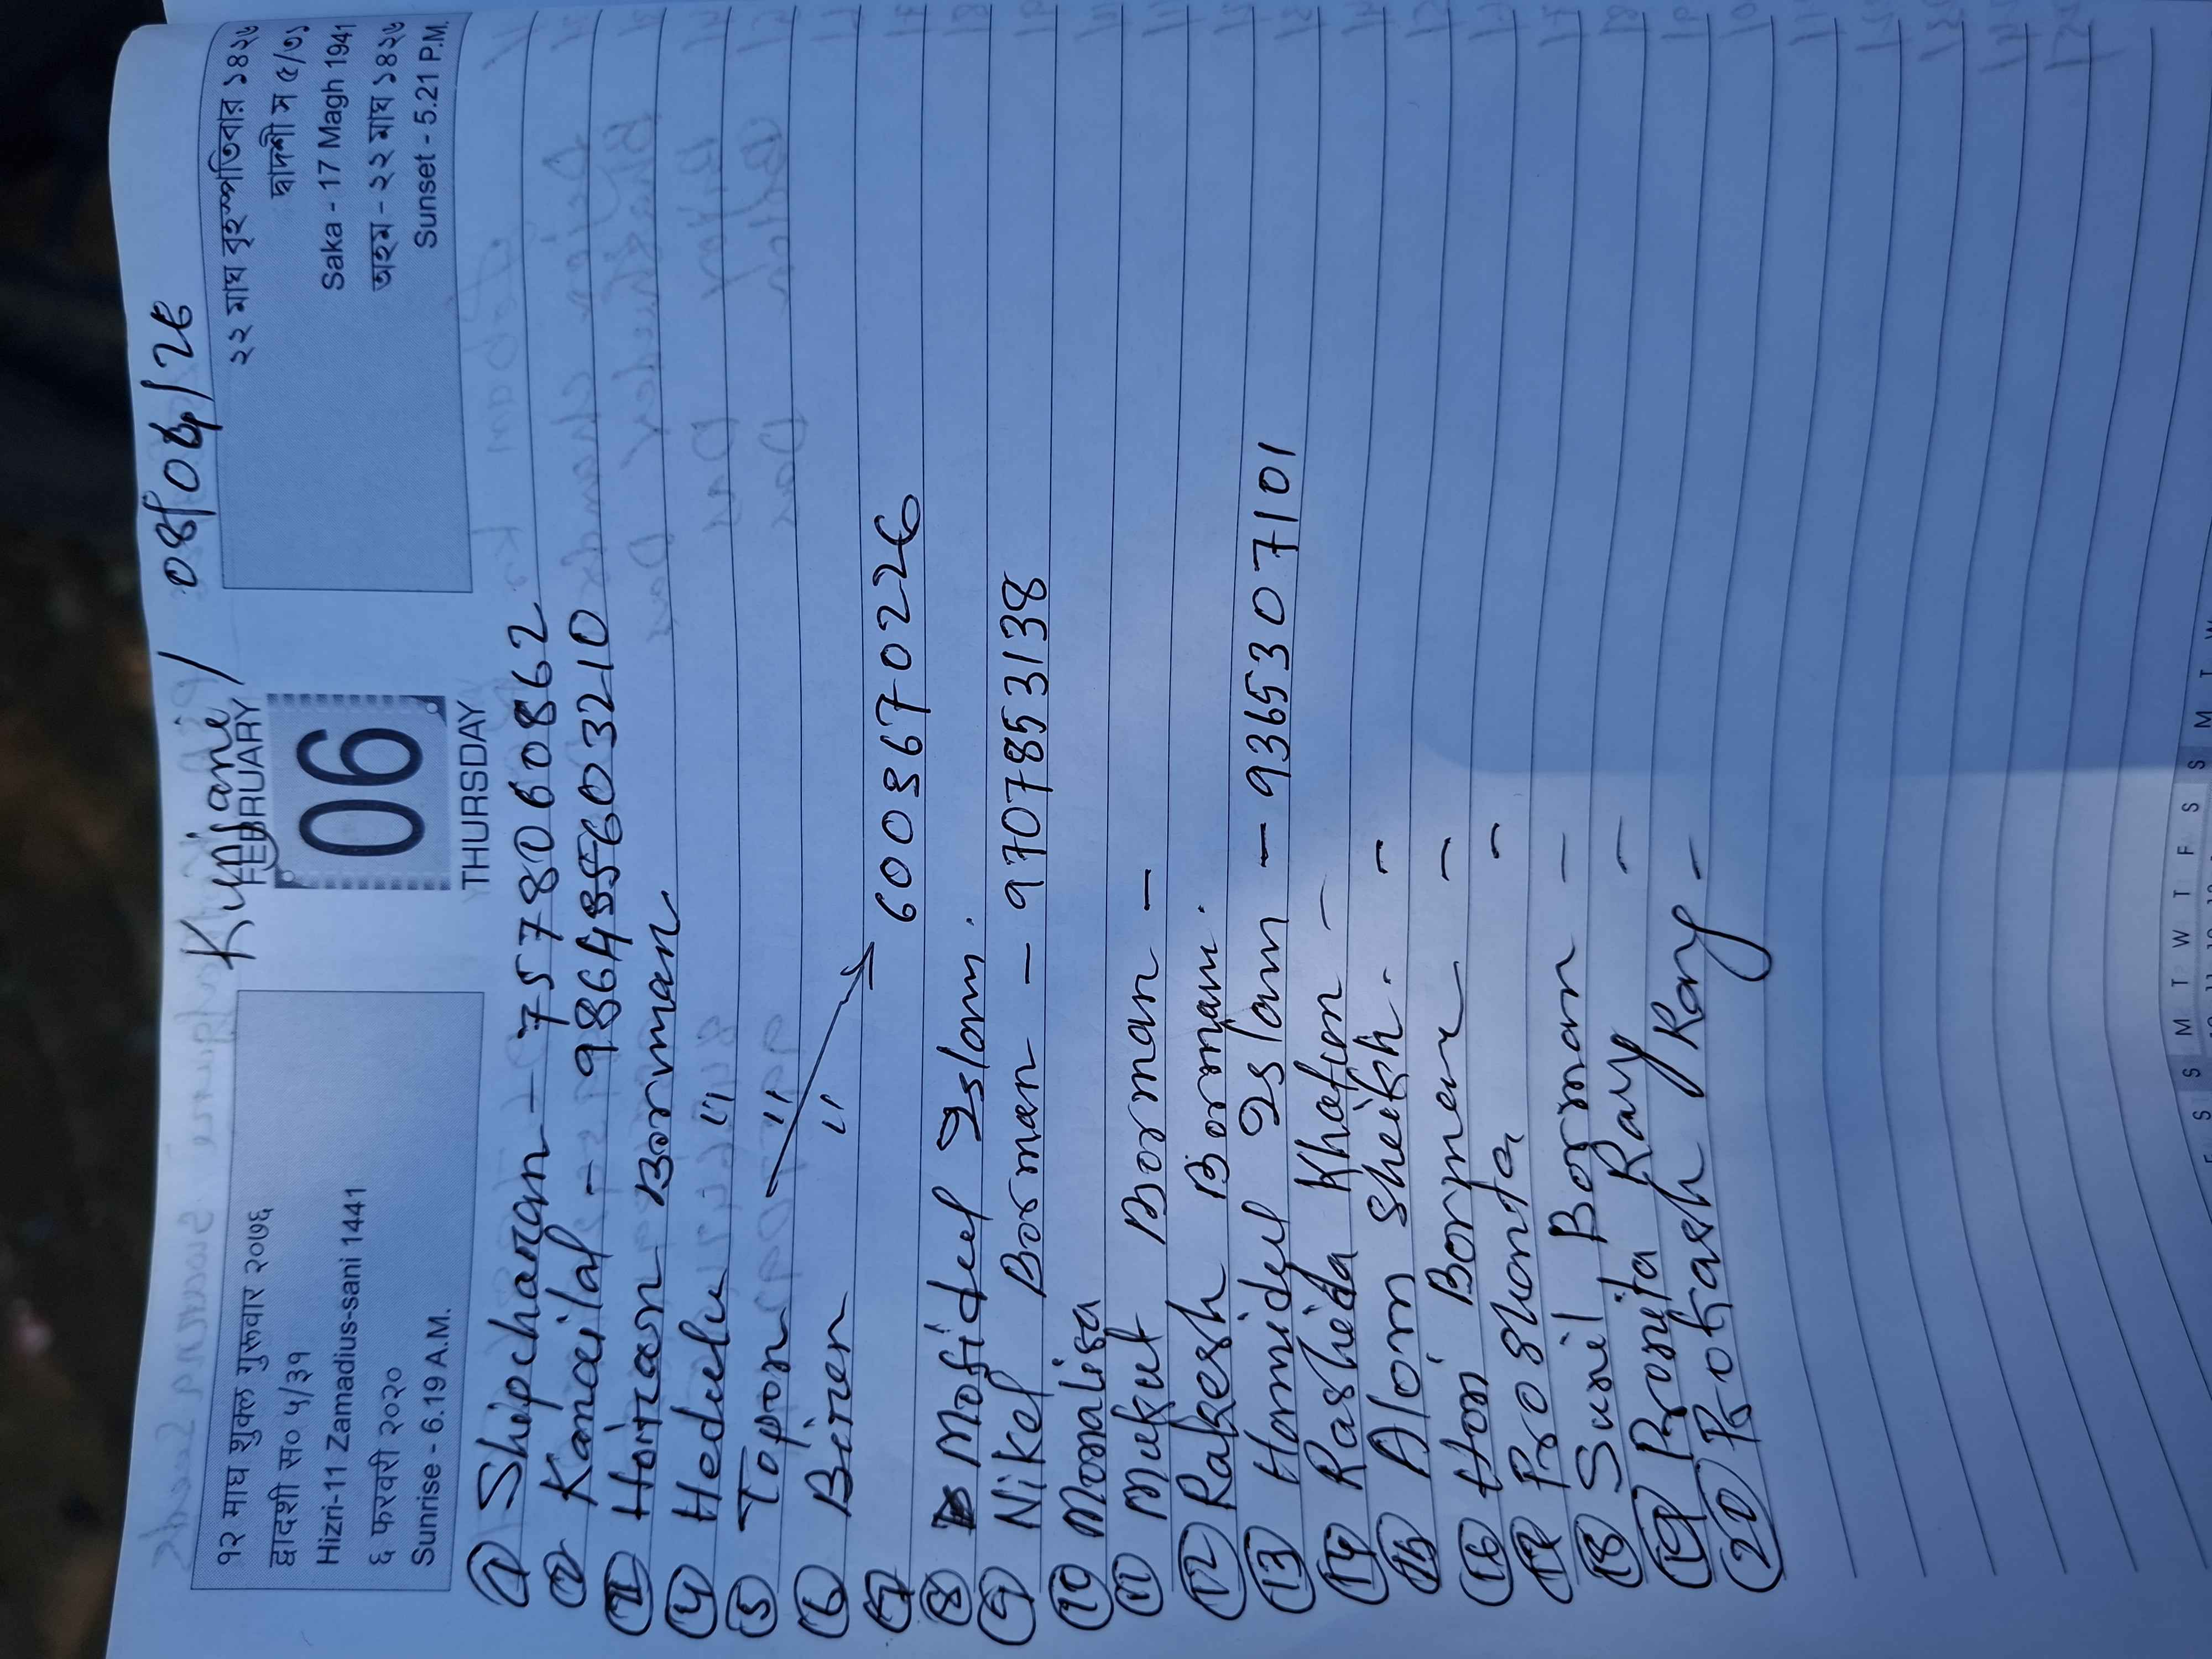 Kunjane / 08/04/26
१२ माघ शुक्ल गुरूवार २०७६
द्वादशी स० ५/३१
Hizri-11 Zamadius-sani 1441
६ फरवरी २०२०
Sunrise - 6.19 A.M.
FEBRUARY
06
THURSDAY
২২ মাঘ বৃহস্পতিবার ১৪২৬
দ্বাদশী স ৫/৩১
Saka - 17 Magh 1941
অহম - ২২ মাঘ ১৪২৬
Sunset - 5.21 P.M.
1 Shipcharan - 7578060862
2 Kanailal - 9864856603210
Hoiran Borman
4 Hedulu "
5 Topon "
6 Biren "
7 6003670226
8 Mofidul Islam.
9 Nikel Borman - 9707853138
10 Monalisa
11 Mukut Borman -
12 Rakesh Borman.
13 Homidul Islam - 9365307101
14 Rasheda Khatun -
15 Alom Sheikh. -
16 Hori Borman -
17 Proshonta -
18 Sunil Borman -
19 Pronita Ray -
20 Prokash Ray -
S M T W T F S S M T W